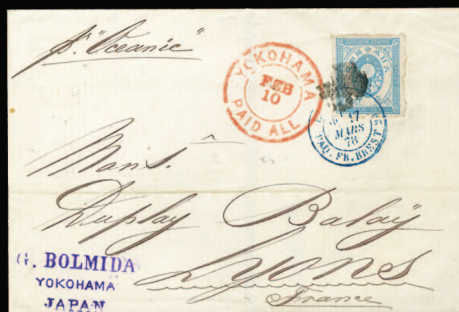 p. "Oceanic"
YOKOHAMA
FEB
10
PAID ALL
17
MARS
78
PAQ. FR. BREST
Mons.
Duplay Balaÿ
Lyons
France
G. BOLMIDA
YOKOHAMA
JAPAN